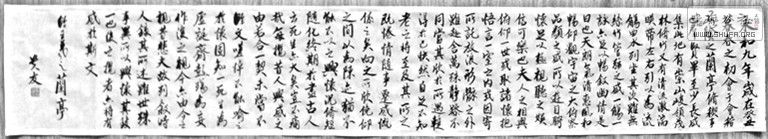 永和九年歲在癸丑
暮春之初會于會稽
山陰之蘭亭修禊事
也羣賢畢至少長咸
集此地有崇山峻領茂
林脩竹又有清流激湍
映帶左右引以為流
觴曲水列坐其次雖無
絲竹管弦之盛一觴一
詠亦足以暢敘幽情是
日也天朗氣清惠風和
暢仰觀宇宙之大俯察
品類之盛所以遊目騁
懷足以極視聽之娛
信可樂也夫人之相與
俯仰一世或取諸懷抱
悟言一室之內或因寄
所託放浪形骸之外
雖趣舍萬殊靜躁不
同當其欣於所遇輒
得於己快然自足不知
老之將至及其所之
既倦情隨事遷感慨
係之矣向之所欣俛仰
之間以為陳迹猶不
能不以之興懷況脩短
隨化終期於盡古人
云死生亦大矣豈不痛
哉每攬昔人興感之
由若合一契未嘗不
臨文嗟悼不能喻之
於懷固知一死生為
虛誕齊彭殤為妄
作後之視今亦由今之
視昔悲夫故列敘時
人錄其所述雖世殊
事異所以興懷其致
一也後之攬者亦將有
感於斯文
臨王羲之蘭亭
友